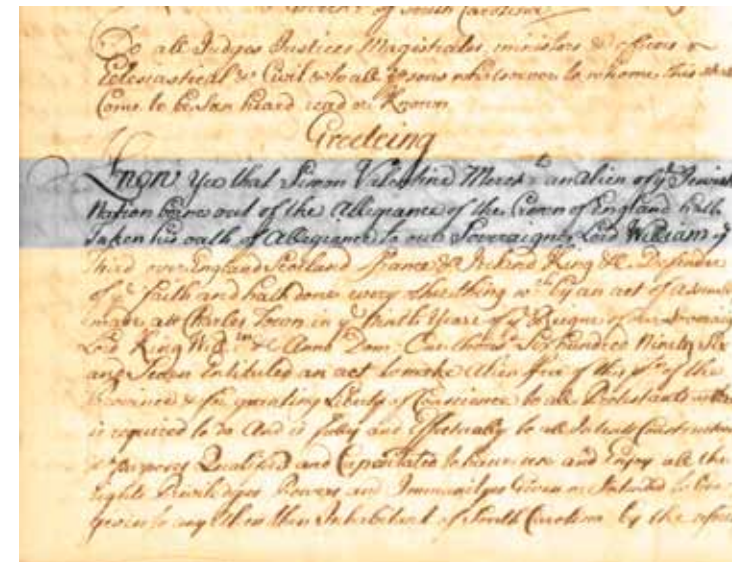 of South Carolina
To all Judges Justices Magistrates, ministers & officers
Eclesiastical & Civil & to all persons whatsoever to whome this
Come to be seen heard read or Known
Greeteing
Know Yee that Simon Valentine Merch.t an alien of ye Jewish
Nation borne out of the Allegiance of the Crown of England hath
Taken his oath of Allegiance to our Sovereigne Lord William ye
Third over England Scotland France & Ireland King &c Defender
of ye faith and hath done every other thing wch by an act of
made att Charles Town in ye Yeare of ye Reigne of
Lord King Will.m &c Anno Dom. One thous.d Six hundred Ninety Six
and Seven Entituled an act to make Alien free of this of the
Province & for granting Liberty of Conscience to all Protestants
is required to do And is fully and Effectually to all Intents Constructions
& purposes Qualified and Capacitated to have use and Enjoy all the
Rights Priviledges Powers and Immunityes Given or Intended to be
given to any Alien then Inhabitant of South Carolina by the